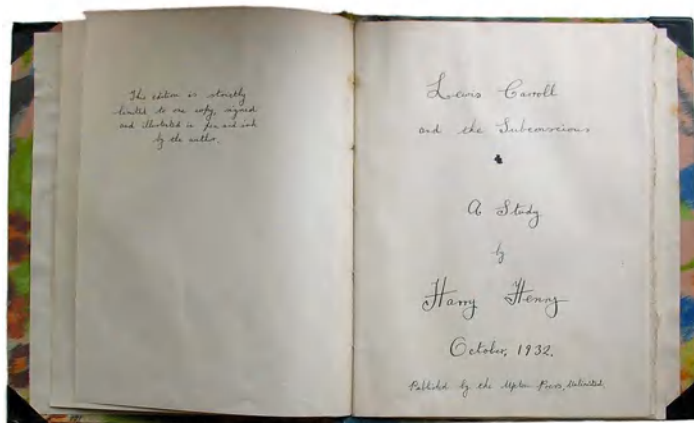 This edition is strictly
limited to one copy, signed
and illustrated in pen and ink
by the author.
Lewis Carroll
and the Subconscious
A Study
by
Harry Henry
October, 1932.
Published by the Upton Press, Unlimited.